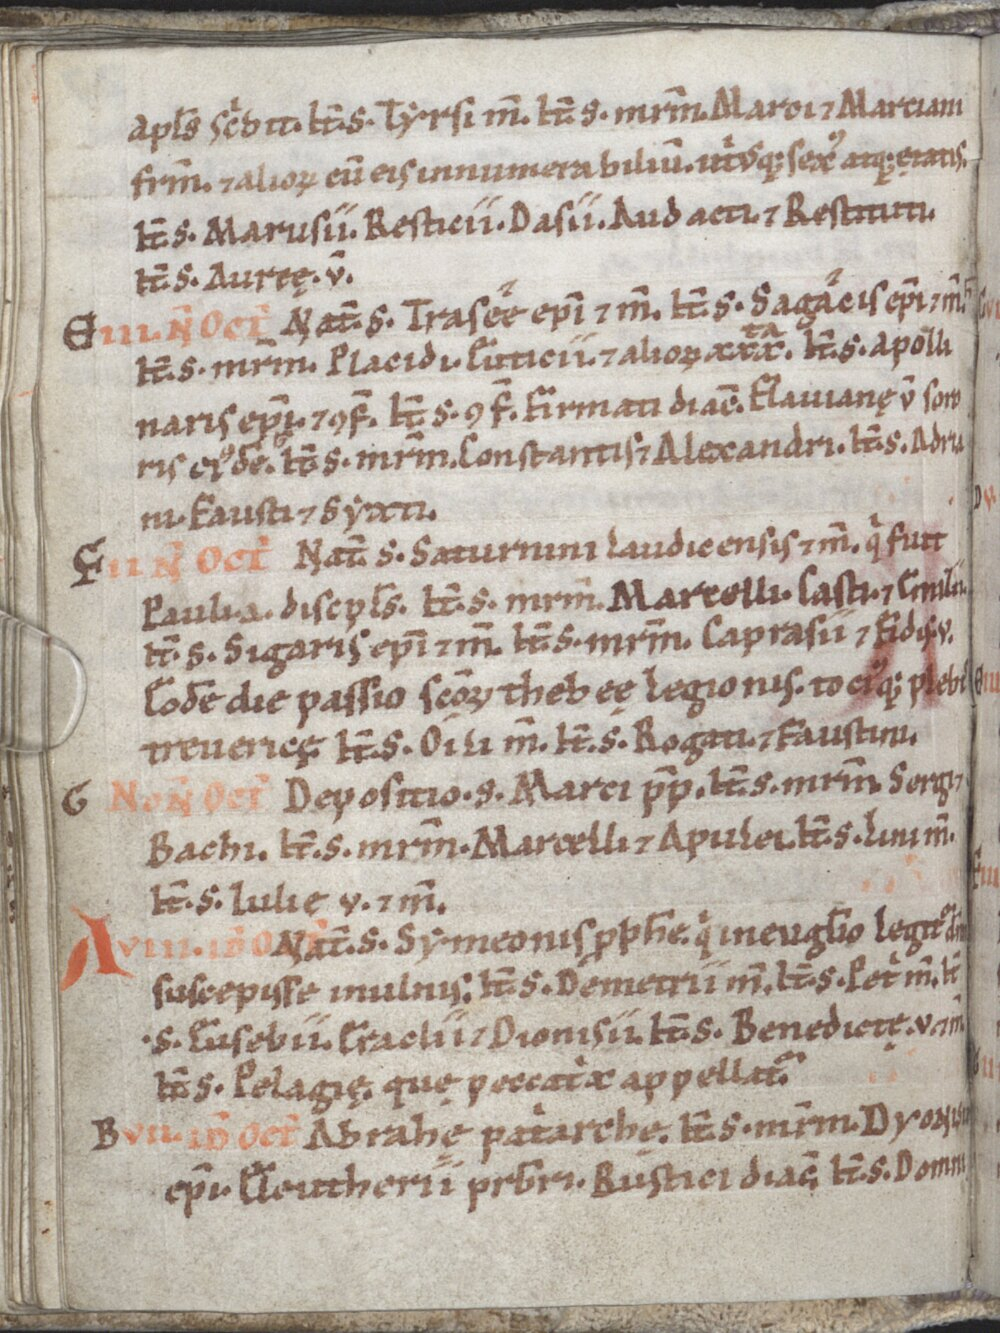 apl̄s sc̄bit. It̄.s. Tyrsi m̄. It̄.s. mr̄m. Marci ⁊ Marciani
fr̄m. ⁊ alioꝝ cū eis innumerabiliū. utͥusq; sexꝰ atq; ętatis.
It̄.s. Marusii. Resticii. Dasii. Audacti. ⁊ Restituti.
It̄.s. Aurę. v̄.
E IIII. N̄ Oct̄ Nat̄.s. ep̄i ⁊ m̄. It̄.s. Sagacis ep̄i ⁊ m̄.
It̄.s. mr̄m. Placidi. Euticii. ⁊ alioꝝ xxx.ta It̄.s. apolli
naris ep̄i. ⁊ ꝯf̄. It̄.s. ꝯf̄. Firmati diac̄. Flauianę v̄ soro
ris eiꝰdē. It̄.s. mr̄m. Constantis ⁊ Alexandri. It̄.s. Adria
ni. Fausti ⁊ Syxti.
F III N̄ Oct̄ Nat̄.s. Saturnini laudicensis ⁊ m̄. qͥ fuit
Pauli.a. discipl̄s. It̄.s. mr̄m. Marcelli. Casti. ⁊ Emilii.
It̄.s. Sigaris ep̄i ⁊ m̄. It̄.s. mr̄m. Caprasii ⁊ Fidis.v.
Eodē die passio sc̄oꝝ thebeę legionis. tociꝰq; plebis
treuericę It̄.s. m̄. It̄.s. Rogati. ⁊ Faustini.
G Non̄ Oct̄ Depositio.s. Marci p̄p. It̄.s. mr̄m. Sergi ⁊
Bachi. It̄.s. mr̄m. Marcelli ⁊ Apulei. It̄.s. lini m̄.
It̄.s. Iulię v. ⁊ m̄.
A VIII. id̄ Oct̄ Nat̄.s. Symeonis ꝓph̄e. qͥ in eugl̄io legit̄ dn̄m
suscepisse in ulnis. It̄.s. Demetrii m̄. It̄.s. Pet̄ m̄. It̄
.s. Eusebii. Eraclii ⁊ Dionisii. It̄.s. Benedictę. v. ⁊ m̄.
It̄.s. Pelagię. quę peccatͥx appellat̄.
B VII. id̄ Oct̄ Abrahę patͥarchę. It̄.s. mr̄m. Dyonisii
ep̄i. Eleutherii pr̄bri. Rustici diac̄ It̄.s. Domni